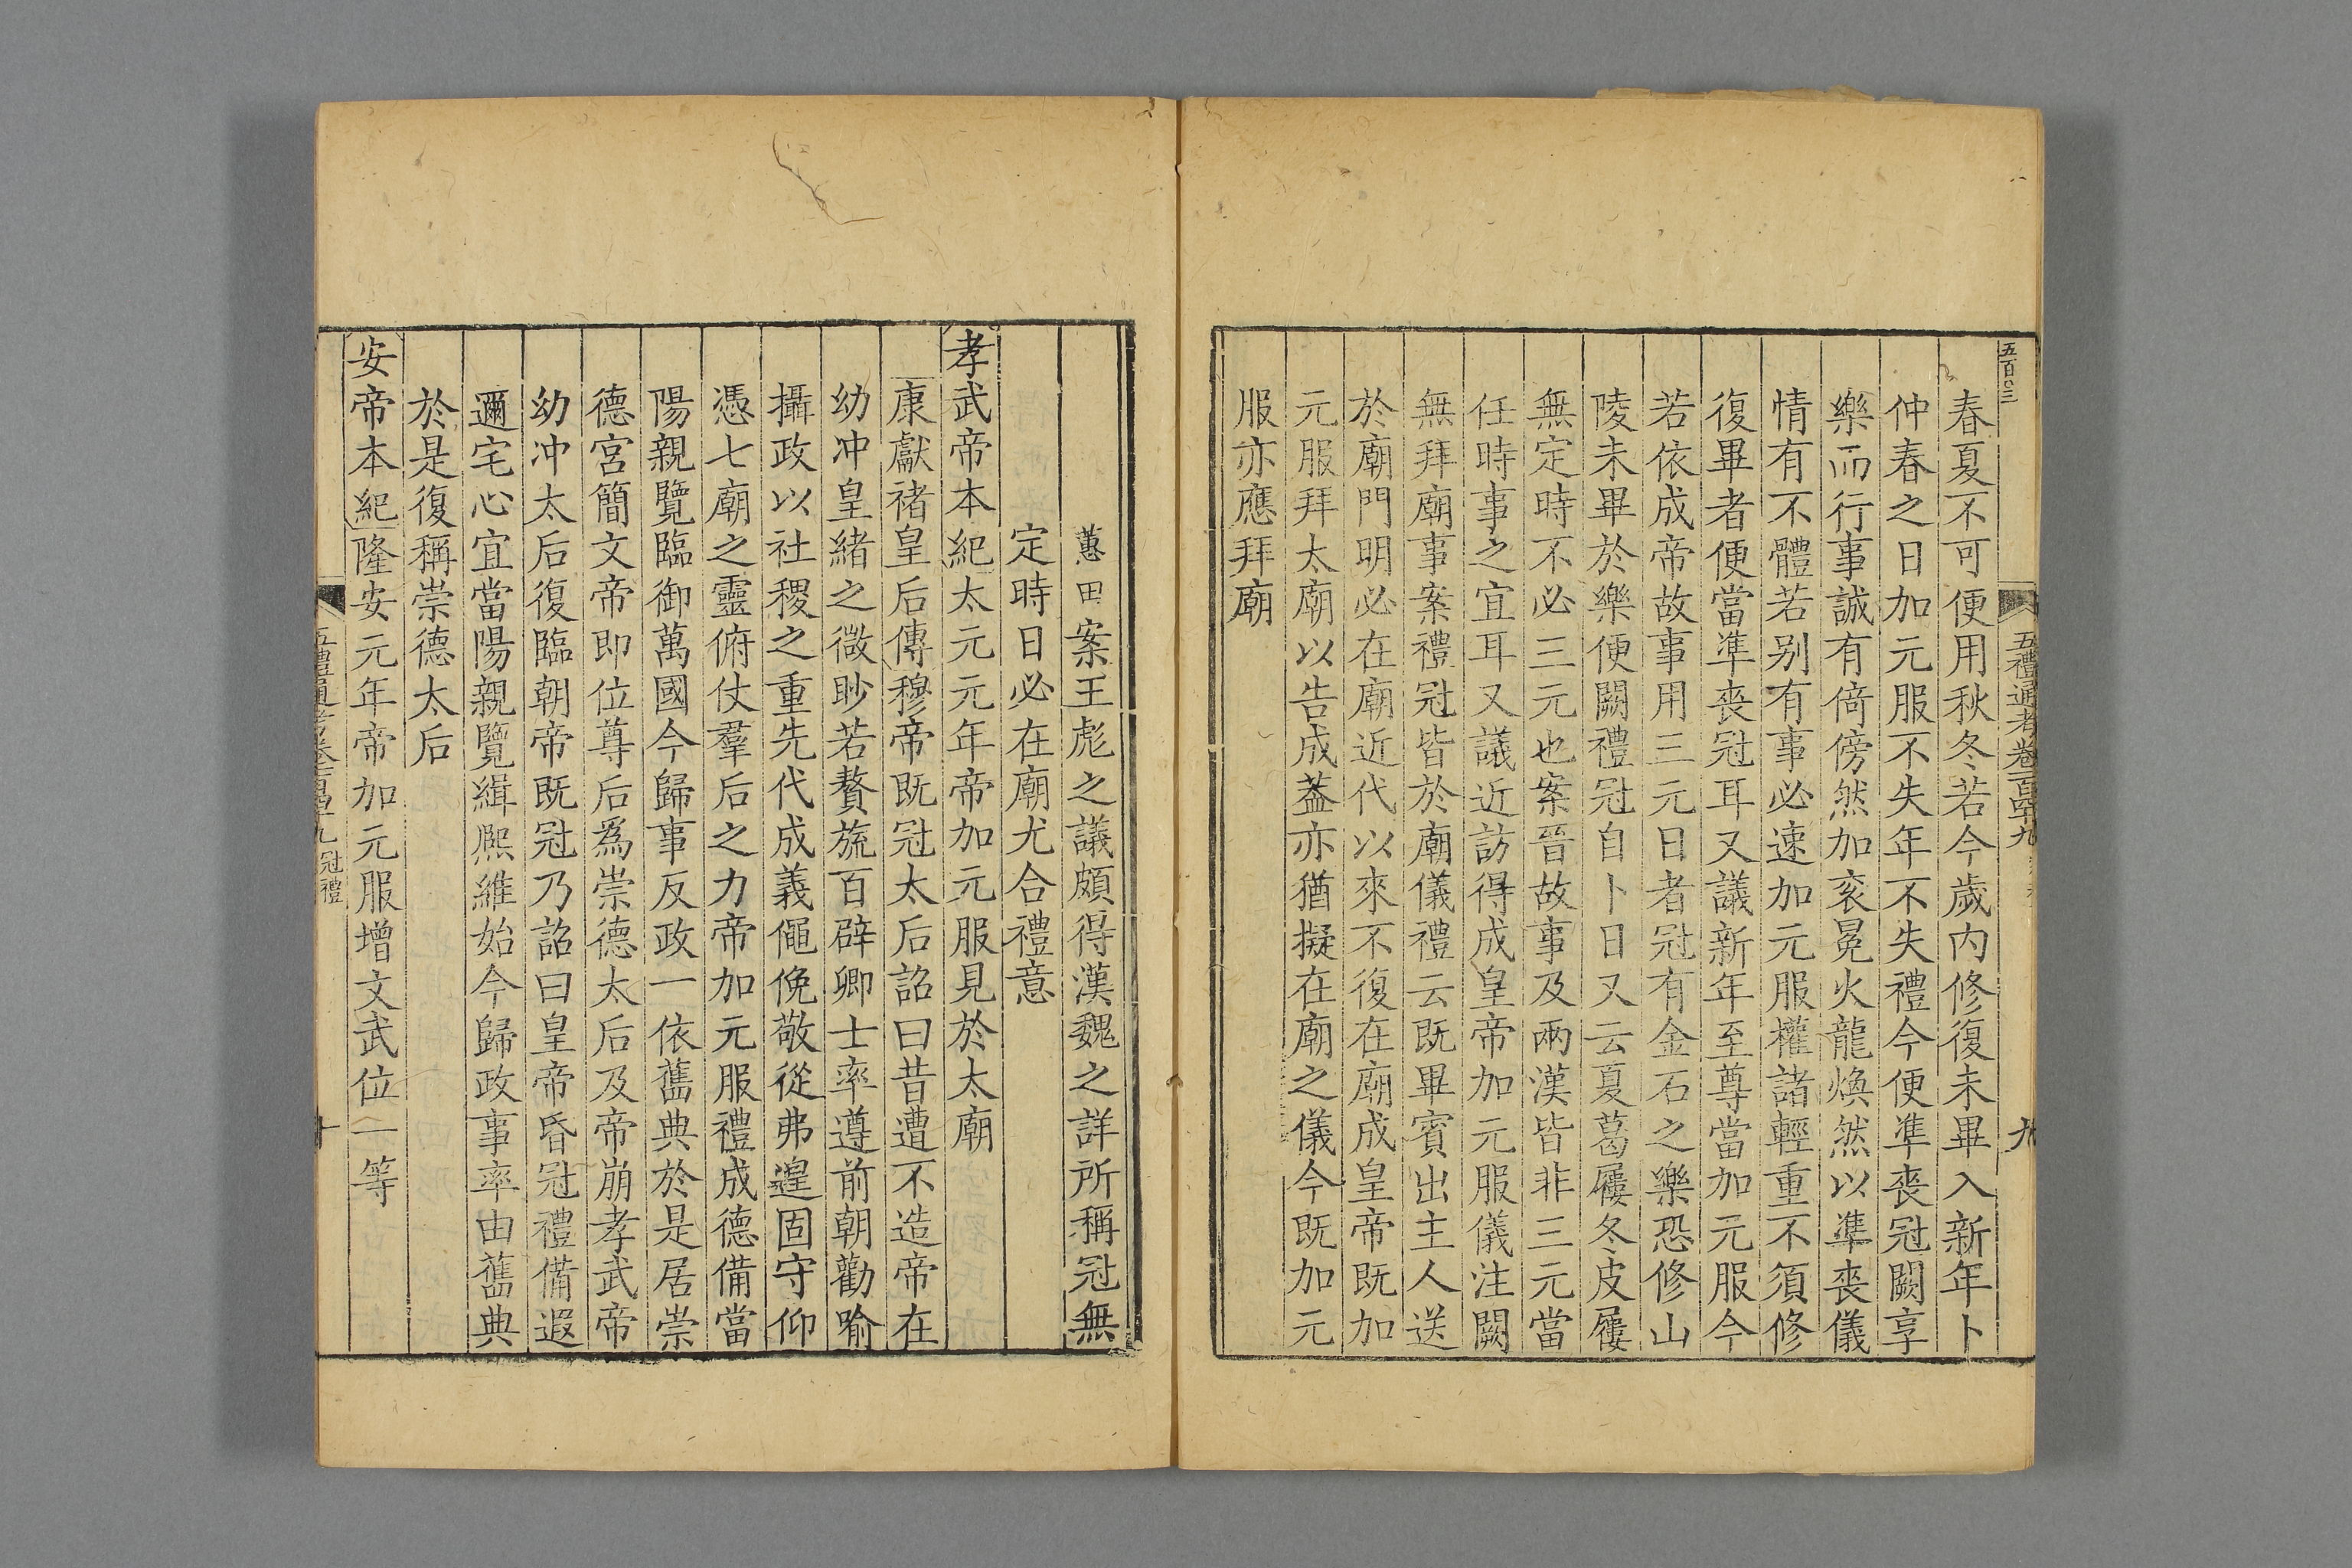 五禮通考卷一百四十九
九
春夏不可便用秋冬若今歲內修復未畢入新年卜
仲春之日加元服不失年不失禮今便準喪冠闕享
樂而行事誠有倚傍然加衮冕火龍煥然以準喪儀
情有不體若别有事必速加元服權諸輕重不須修
復畢者便當準喪冠耳又議新年至尊當加元服今
若依成帝故事用三元日者冠有金石之樂恐修山
陵未畢於樂便闕禮冠自卜日又云夏葛屨冬皮屨
無定時不必三元也案晉故事及兩漢皆非三元當
任時事之宜耳又議近訪得成皇帝加元服儀注闕
無拜廟事案禮冠皆於廟儀禮云既畢賓出主人送
於廟門明必在廟近代以來不復在廟成皇帝既加
元服拜太廟以告成葢亦猶擬在廟之儀今既加元
服亦應拜廟
蕙田案王彪之議頗得漢魏之詳所稱冠無
定時日必在廟尤合禮意
孝武帝本紀太元元年帝加元服見於太廟
康獻禇皇后傳穆帝既冠太后詔曰昔遭不造帝在
幼冲皇緒之微眇若贅旒百辟卿士率遵前朝勸喻
攝政以社稷之重先代成義僶俛敬從弗遑固守仰
憑七廟之靈俯仗羣后之力帝加元服禮成德備當
陽親覽臨御萬國今歸事反政一依舊典於是居崇
德宮簡文帝即位尊后爲崇德太后及帝崩孝武帝
幼冲太后復臨朝帝既冠乃詔曰皇帝昏冠禮備遐
邇宅心宜當陽親覽緝熙維始今歸政事率由舊典
於是復稱崇德太后
安帝本紀隆安元年帝加元服增文武位一等
五禮通考卷一百四十九 冠禮
十